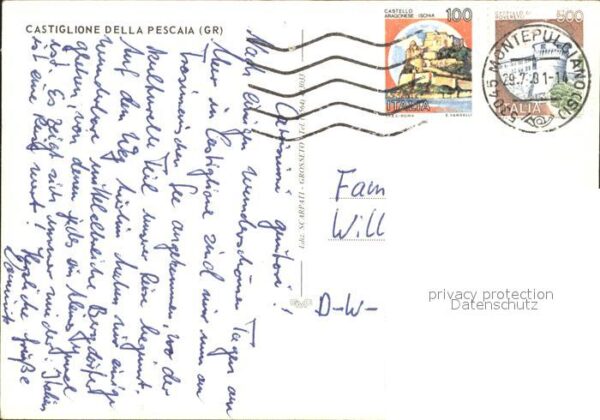 CASTIGLIONE DELLA PESCAIA (GR)
CASTELLO
ARAGONESE ISCHIA
100
ITALIA
500
ITALIA
53045 MONTEPULCIANO (SI)
29.7.91-14
Carissimi genitori!
Nach einigen wunderschönen Tagen am
Meer in Castiglione sind wir nun am
Trasimenischen See angekommen, wo der
kulturelle Teil unserer Reise beginnt.
Auf dem Weg hierhin haben wir einige
wunderbare mittelalterliche Bergdörfer
gesehen, von denen jedes ein
ist. Es zeigt sich immer wieder: Italien
ist eine Reise wert!
Herzliche Grüße
Ediz. SCARPATI - GROSSETO
Fam
Will
D-W-
privacy protection
Datenschutz